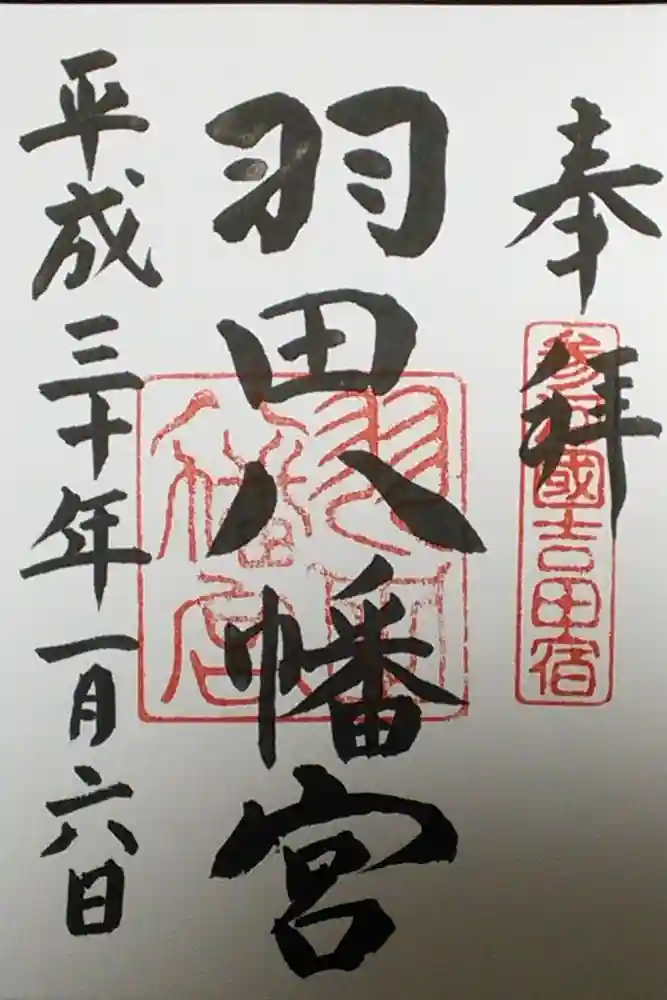 奉拝
参河國吉田宿
羽田八幡宮
平成三十年一月六日